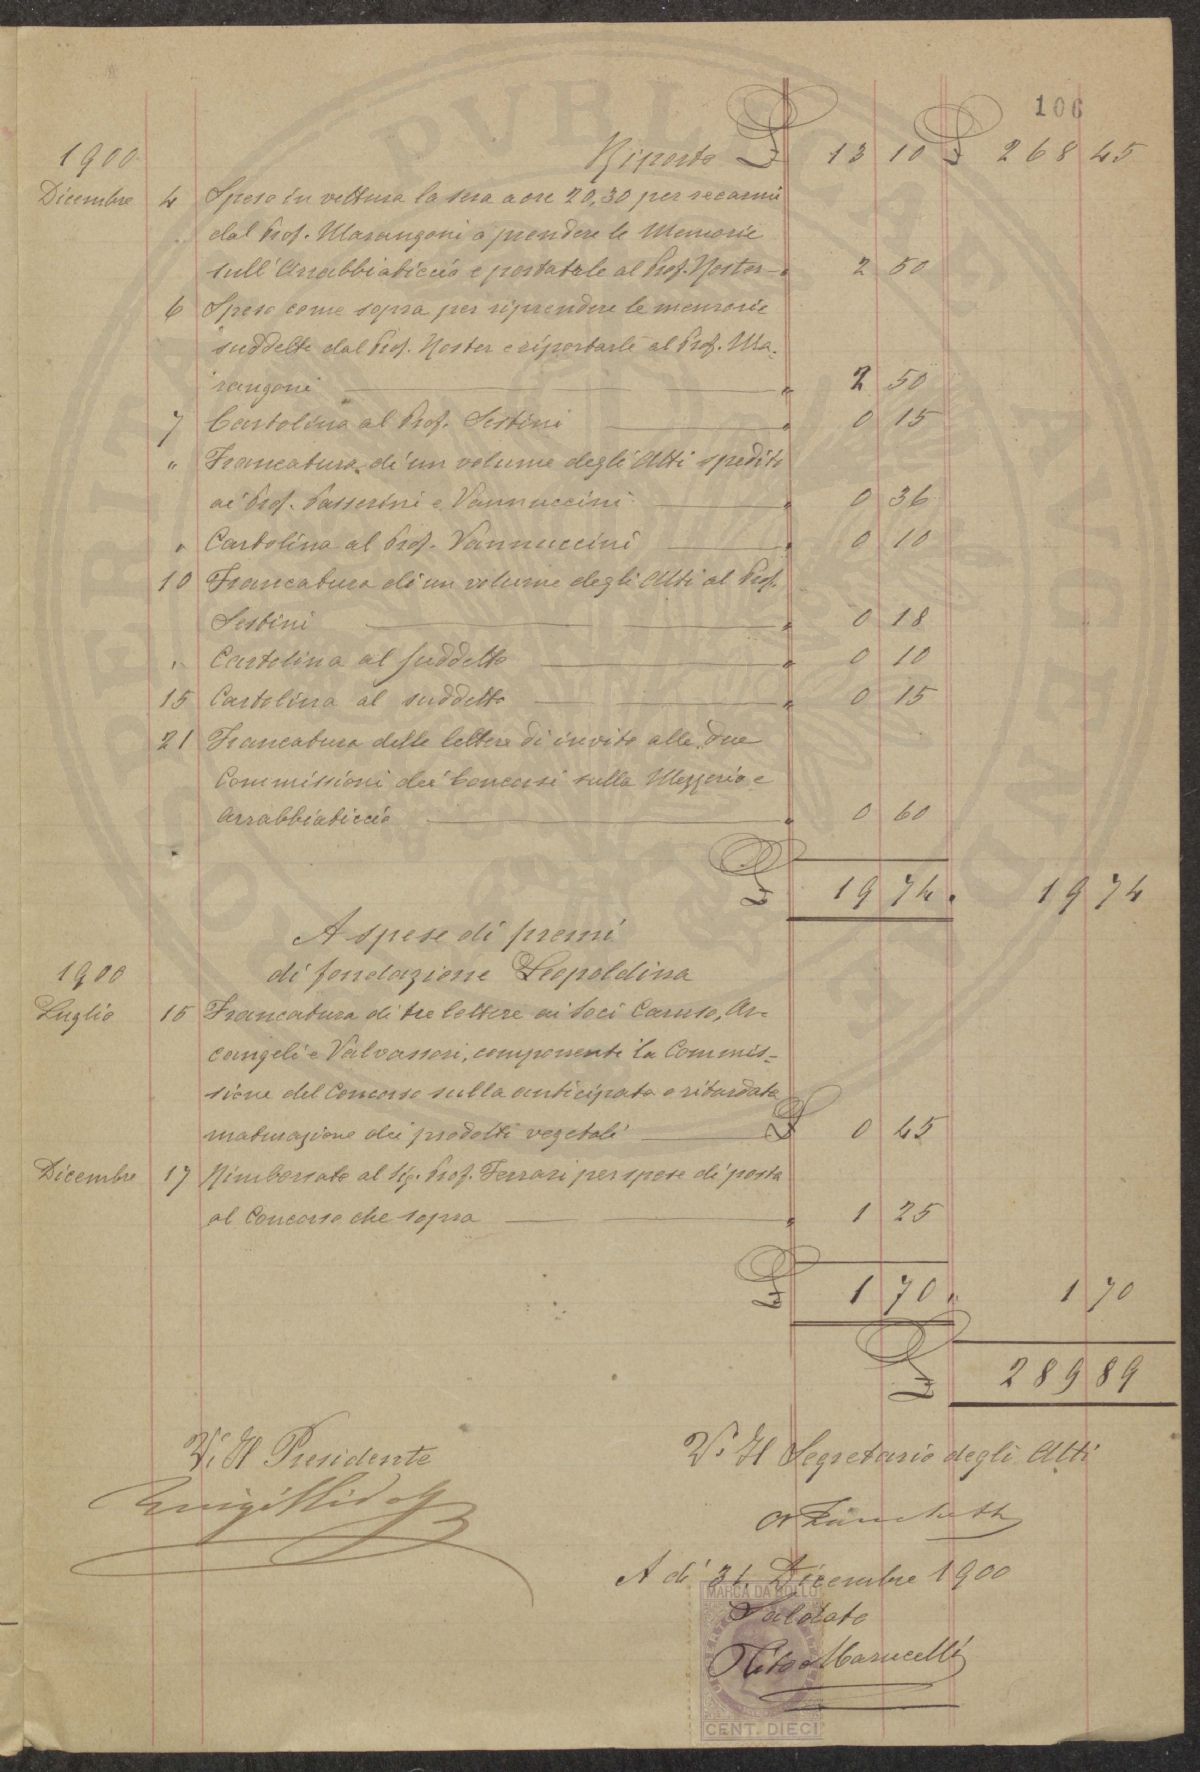 106
1900 Riporto £ 13 10 £ 268 45
Dicembre 4 Spese in vettura la sera a ore 20,30 per recarmi
dal Prof. Marangoni a prendere le Memorie
sull'Arrabbiaticcio e portatele al Prof. Roster — " 2 50
6 Spese come sopra per riprendere le memorie
suddette dal Prof. Roster e riportarle al Prof. Ma-
rangoni — " 2 50
7 Cartolina al Prof. Sestini — " 0 15
" Francatura di un volume degli Atti spedito
ai Prof. Passerini e Vannuccini — " 0 36
" Cartolina al Prof. Vannuccini — " 0 10
10 Francatura di un volume degli Atti al Prof.
Sestini — " 0 18
" Cartolina al suddetto — " 0 10
15 Cartolina al suddetto — " 0 15
21 Francatura delle lettere di invito alle due
Commissioni dei Concorsi sulla Mezzeria e
Arrabbiaticcio — " 0 60
£ 19 74 " 19 74
A spese di premi
1900 di fondazione Leopoldina
Luglio 15 Francatura di tre lettere ai Soci Caruso, Ar-
cangeli e Valvassori, componenti la Commis-
sione del Concorso sulla anticipata o ritardata
maturazione dei prodotti vegetali — £ 0 45
Dicembre 17 Rimborsato al Sig. Prof. Ferrari per spese di posta
al Concorso che sopra — " 1 25
£ 1 70 " 1 70
£ 289 89
V. Il Presidente
V. Il Segretario degli Atti
A dì 31 Dicembre 1900
MARCA DA BOLLO
Saldato
Marucelli
CENT. DIECI